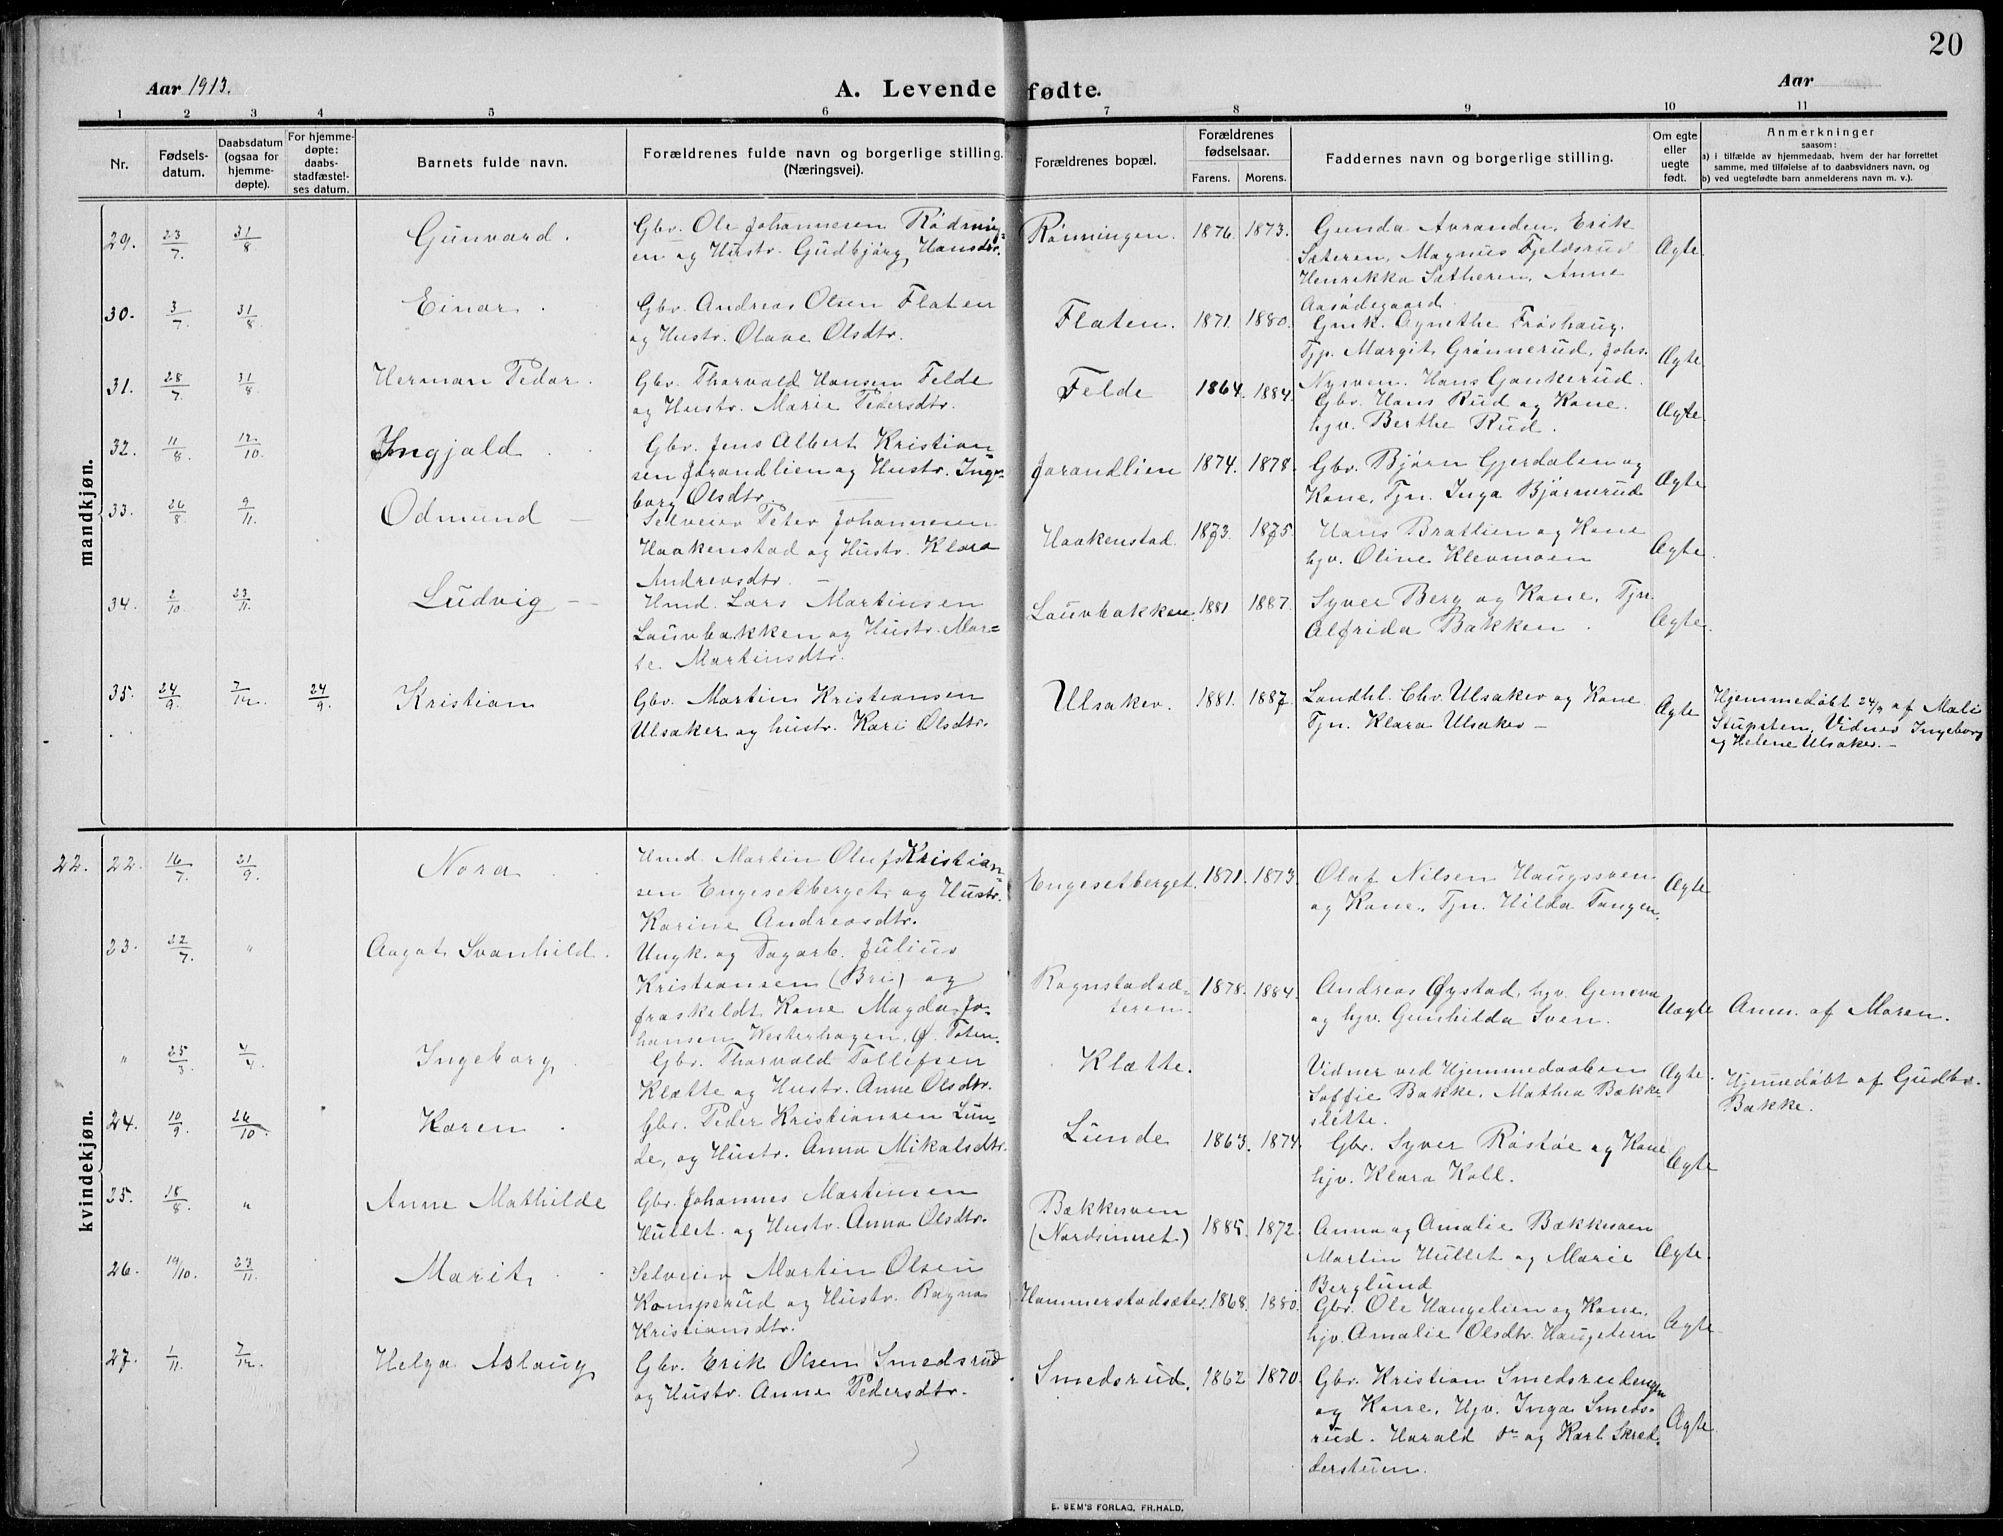 20
Aar 1913.
A. Levende fødte.
Aar
1 2 3 4 5 6 7 8 9 10 11
Nr.
Fødsels-
datum.
Daabsdatum
(ogsaa for
hjemme-
døpte).
For hjemme-
døpte:
daabs-
stadfæstel-
ses datum.
Barnets fulde navn.
Forældrenes fulde navn og borgerlige stilling.
(Næringsvei).
Forældrenes bopæl.
Forældrenes
fødselsaar.
Farens. Morens.
Faddernes navn og borgerlige stilling.
Om egte
eller
uegte
født.
Anmerkninger
saasom:
a) i tilfælde av hjemmedaab, hvem der har forrettet
samme, med tilføielse af to daabsvidners navn, og
b) ved uegtefødte barn anmelderens navn m. v.).
mandkjøn.
29. 23/7 31/8 Gunvard.
Gbr. Ole Johannesen Rødning-
en og Hustr. Gudbjørg Hansdtr.
Rønningen. 1876. 1873.
Gunda Erik
Sæteren, Magnus Fjeldsrud
Henrikka Sætheren, Anne
Aasødegaard
Ægte
30. 3/7 31/8 Einar.
Gbr. Andreas Olsen Flaten
og Hustr. Olave Olsdtr.
Flaten. 1871. 1880.
Gmk. Agnethe Frøshaug.
Tjp. Margit Grønnerud, Johs.
Nysven. Hans Gankerud.
Ægte
31. 28/7 31/8 Herman Peder.
Gbr. Thorvald Hansen Felde
og Hustr. Marie Pedersdtr.
Felde 1864. 1884.
Gbr. Hans Rud og Kone.
hjv. Berthe Rud.
Ægte
32. 11/8 12/10 Ingjald.
Gbr. Jens Albert Kristian-
sen Jorandlien og Hustr. Inge-
borg Olsdtr.
Jorandlien 1874. 1878.
Gbr. Bjørn Gjerdalen og
Kone, Tjn. Inga Bjørnerud
Ægte
33. 26/8 9/11. Odmund –
Selveier Peter Johannesen
Haakenstad og Hustr. Klara
Andreasdtr. –
Haakenstad 1873. 1875.
Hans Bratlien og Kone
hjv. Oline Klevmoen
Ægte.
34. 2/10 23/11. Ludvig –
Hmd. Lars Martinsen
Lauvbakken og Hustr. Mar-
te. Martinsdtr.
Lauvbakken. 1881 1887.
Syver Berg og Kone, Tjn.
Alfrida Bakken.
Ægte.
35. 24/9 7/12. 24/9 Kristian
Gbr. Martin Kristiansen
Ulsaker og hustr. Kari Olsdtr.
Ulsaker. 1881. 1887.
Landhl. Chr. Ulsaker og Kone
Tjn. Klara Ulsaker –
Ægte
Hjemmedøbt 24/9 af Mali
Stupsten. Vidner Ingeborg
og Helene Ulsaker. –
kvindekjøn.
22. 22. 16/7 21/9 Nora
Hmd. Martin Oluf Kristian-
sen Engesetberget og Hustr.
Karine Andreasdtr.
Engesetberget. 1871. 1873.
Olaf Nilsen Haugssven
og Kone, Tjn. Hilda Tangen.
Ægte
23. 22/7 " Aagot Svanhild.
Ungk. og Dagarb. Julius
Kristiansen (Bri) og
fraskeldt Kone Magda Jo-
hansen Westerhagen, Ø. Toten.
Rognstadsæ-
teren. 1878. 1884.
Andreas Øystad, hjv. Genova
og hjv. Gunhilda Sven.
Uægte Anm. af Moren.
" 25/3 4/4 Ingeborg.
Gbr. Thorvald Tollefsen
Klætte og Hustr. Anne Olsdtr.
Klætte.
Vidner ved Hjemmedaaben
Soffie Bakke, Mathea Bakke-
slette.
Ægte.
Hjemmedøbt af Gudbr.
Bakke.
24. 10/9 26/10. Karen.
Gbr. Peder Kristiansen Lun-
de, og Hustr. Anna Mikalsdtr.
Lunde 1863. 1874.
Gbr. Syver Røstøe og Kone
hjv. Klara Koll.
Ægte
25. 18/8 " Anne Mathilde
Gbr. Johannes Martinsen
Hullet og Hustr. Anna Olsdtr.
Bækkesven
(Nordsinnet) 1885. 1872.
Anna og Amalie Bækkesven
Martin Hullet og Marie
Berglund
Ægte.
26. 19/10. 23/11. Marit
Selveier Martin Olsen
Kamperud og Hustr. Ragna
Kristiansdtr.
Hammerstadsæter. 1868. 1880.
Gbr. Ole Haugelien og Kone.
hjv. Amalie Olsdtr. Haugelien
Ægte.
27. 1/11. 7/12. Helga Aslaug
Gbr. Erik Olsen Smedsrud
og Hustr. Anne Pedersdtr.
Smedsrud. 1862 1870.
Gbr. Kristian Smedsrudengen
og Kone. Hjv. Inga Smeds-
rud. Harald do og Karl Skræd-
derstuen.
Ægte
E. SEM'S FORLAG, FR.HALD.